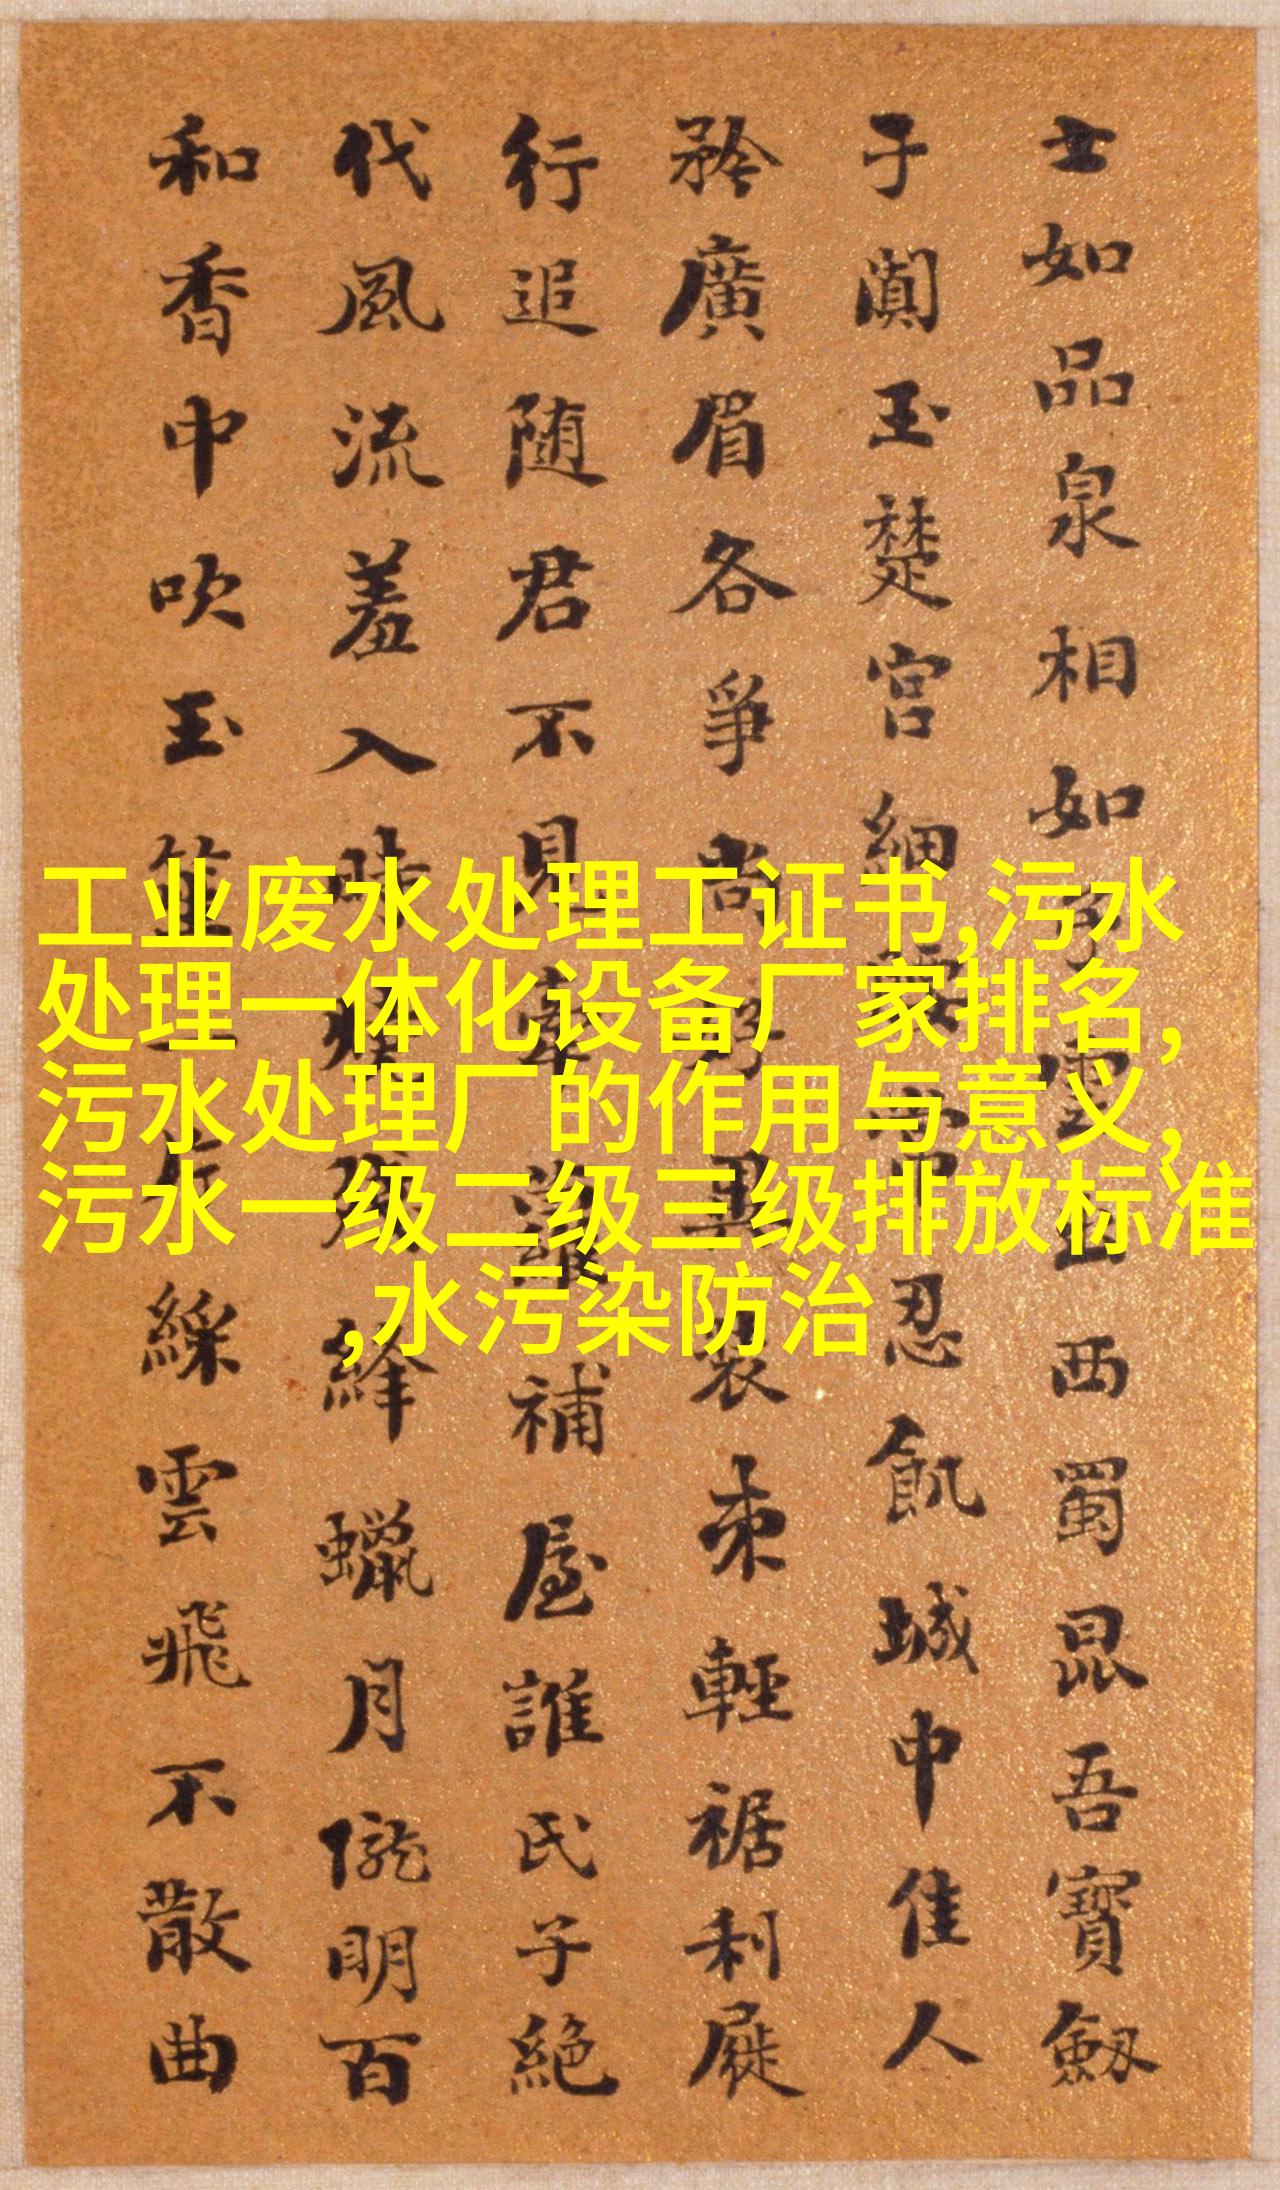 士如品泉相如雲西蜀昆吾寶劔
于闐玉楚宮細忍飢城中佳人
矜廣眉各爭尚好異裝束輕裾利屣
行追随君不見牽蘿補屋誰氏子絕
代風流羞入時絳蠟月隴明百
和香中吹玉片綵雲飛不散曲
工业废水处理工证书,污水
处理一体化设备厂家排名,
污水处理厂的作用与意义,
污水一级二级三级排放标准
,水污染防治